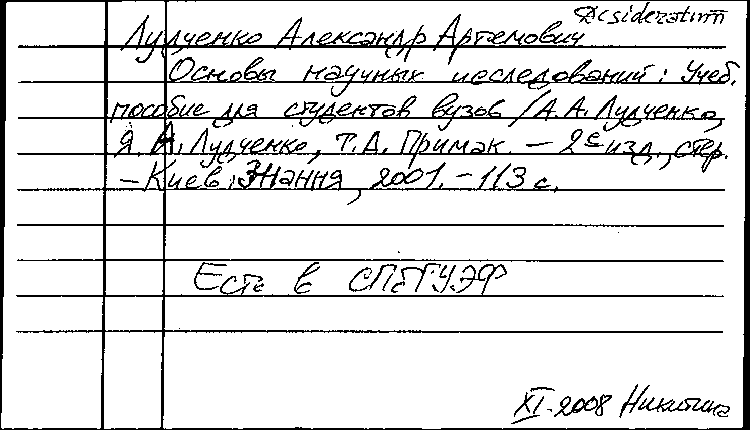 Desideratum
Лудченко Александр Артемович
Основы научных исследований: Учеб.
пособие для студентов вузов / А.А. Лудченко,
Я. А. Лудченко, Т.А. Примак. – 2е изд., стер.
– Киев: Знання, 2001. – 113 с.
Есть в СПбГУЭФ
XI-2008 Никитина